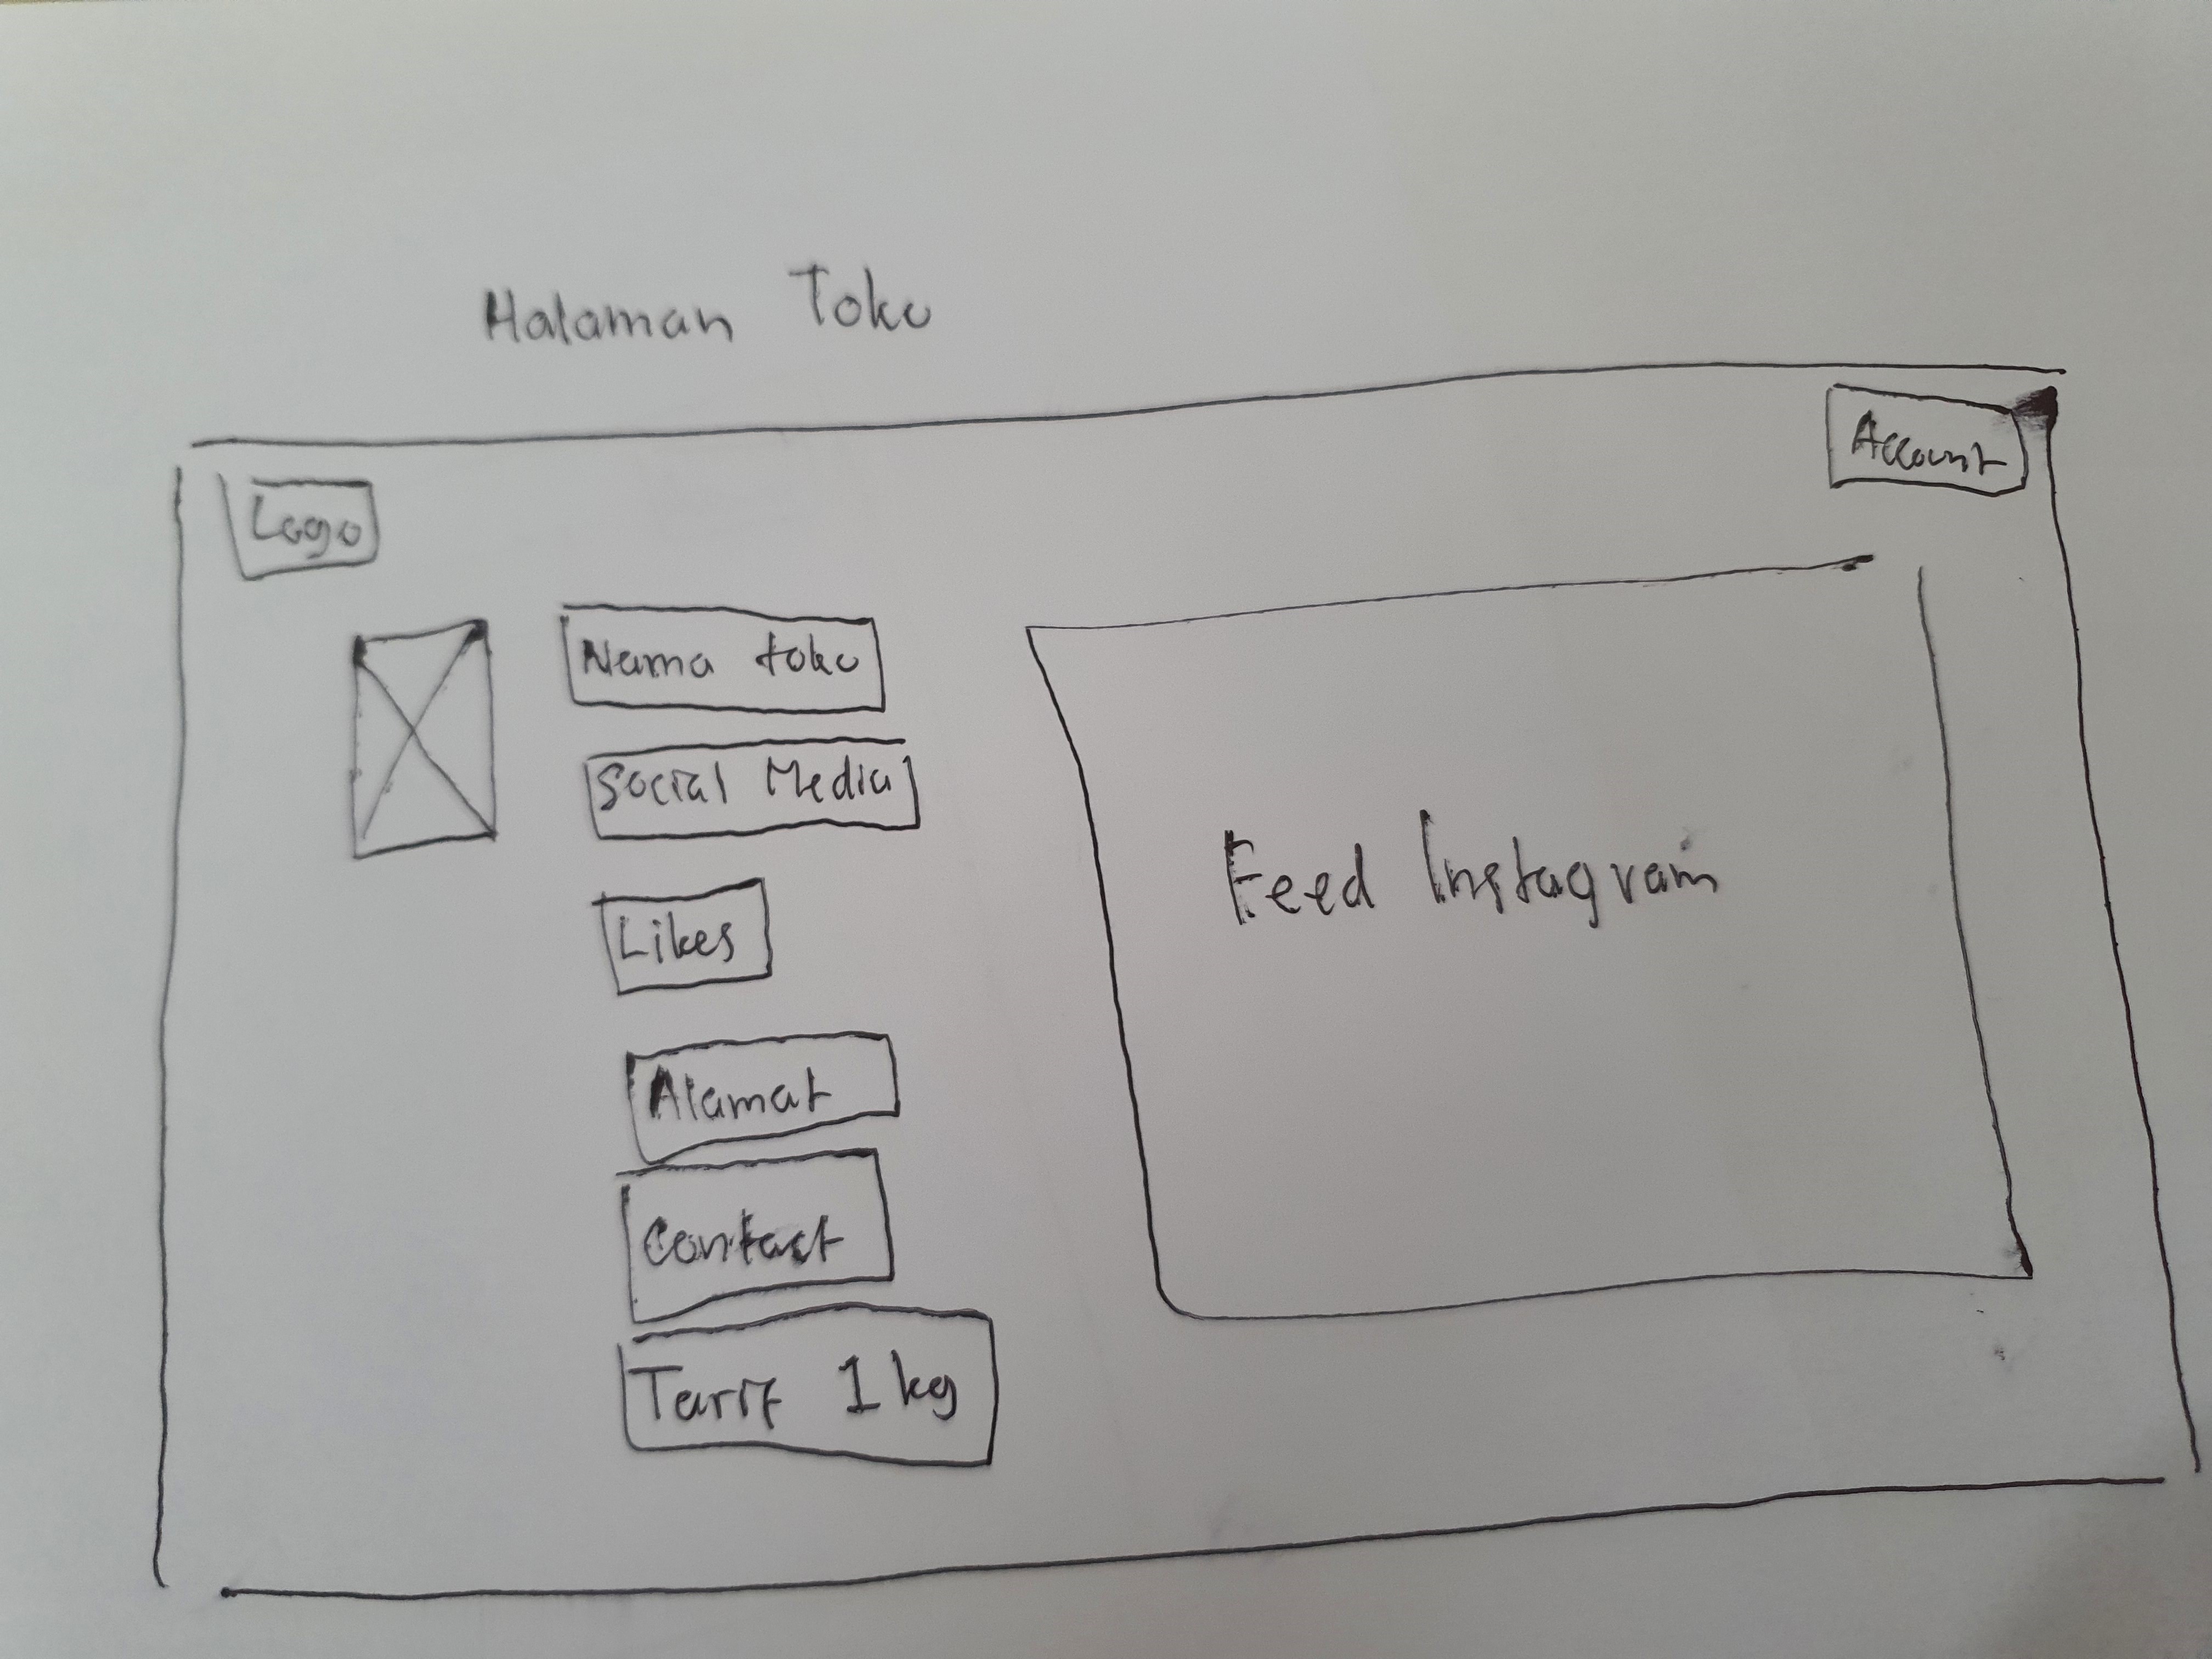 Halaman Toko
Logo
Account
Nama toko
Social Media
Likes
Alamat
Contact
Tarif 1 kg
Feed Instagram